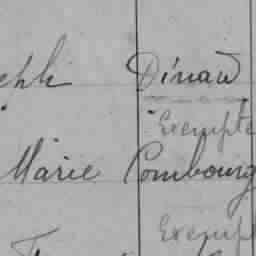 eph Dinan
Exempté
Marie Combourg
Exemp